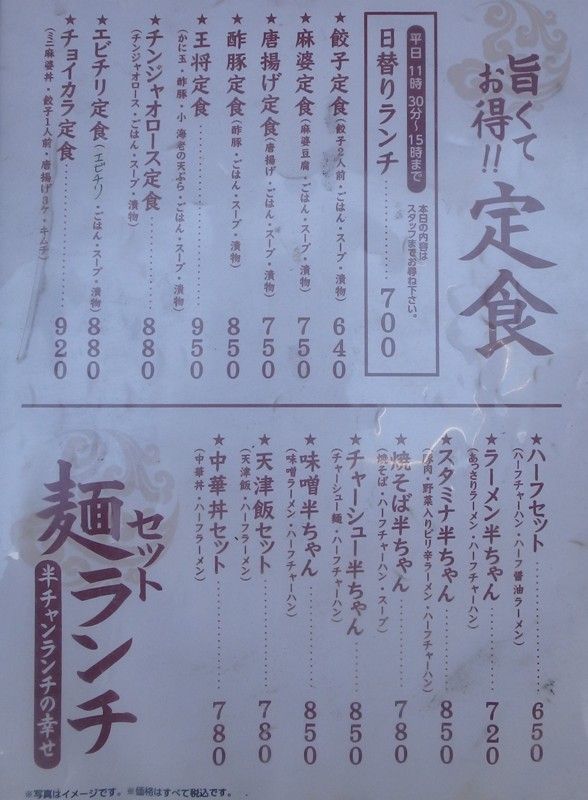 旨くて
お得!!
定食
平日 11時30分～15時まで
日替りランチ……700
本日の内容は
スタッフまでお尋ね下さい。
★餃子定食(餃子2人前・ごはん・スープ・漬物)640
★麻婆定食(麻婆豆腐・ごはん・スープ・漬物)……750
★唐揚げ定食(唐揚げ・ごはん・スープ・漬物)……750
★酢豚定食(酢豚・ごはん・スープ・漬物)……850
★王将定食……950
(かに玉・酢豚・小海老の天ぷら・ごはん・スープ・漬物)
★チンジャオロース定食……880
(チンジャオロース・ごはん・スープ・漬物)
★エビチリ定食(エビチリ・ごはん・スープ・漬物)880
★チョイカラ定食……920
(ミニ麻婆丼・餃子1人前・唐揚げ3ケ・キムチ)
★ハーフセット……650
(ハーフチャーハン・ハーフ醤油ラーメン)
★ラーメン半ちゃん……720
(あっさりラーメン・ハーフチャーハン)
★スタミナ半ちゃん……850
(豚肉・野菜入りピリ辛ラーメン・ハーフチャーハン)
★焼そば半ちゃん……780
(焼そば・ハーフチャーハン・スープ)
★チャーシュー半ちゃん……850
(チャーシュー麺・ハーフチャーハン)
★味噌半ちゃん……850
(味噌ラーメン・ハーフチャーハン)
★天津飯セット……780
(天津飯・ハーフラーメン)
★中華丼セット……780
(中華丼・ハーフラーメン)
セット
麺ランチ
半チャンランチの幸せ
※写真はイメージです。※価格はすべて税込です。